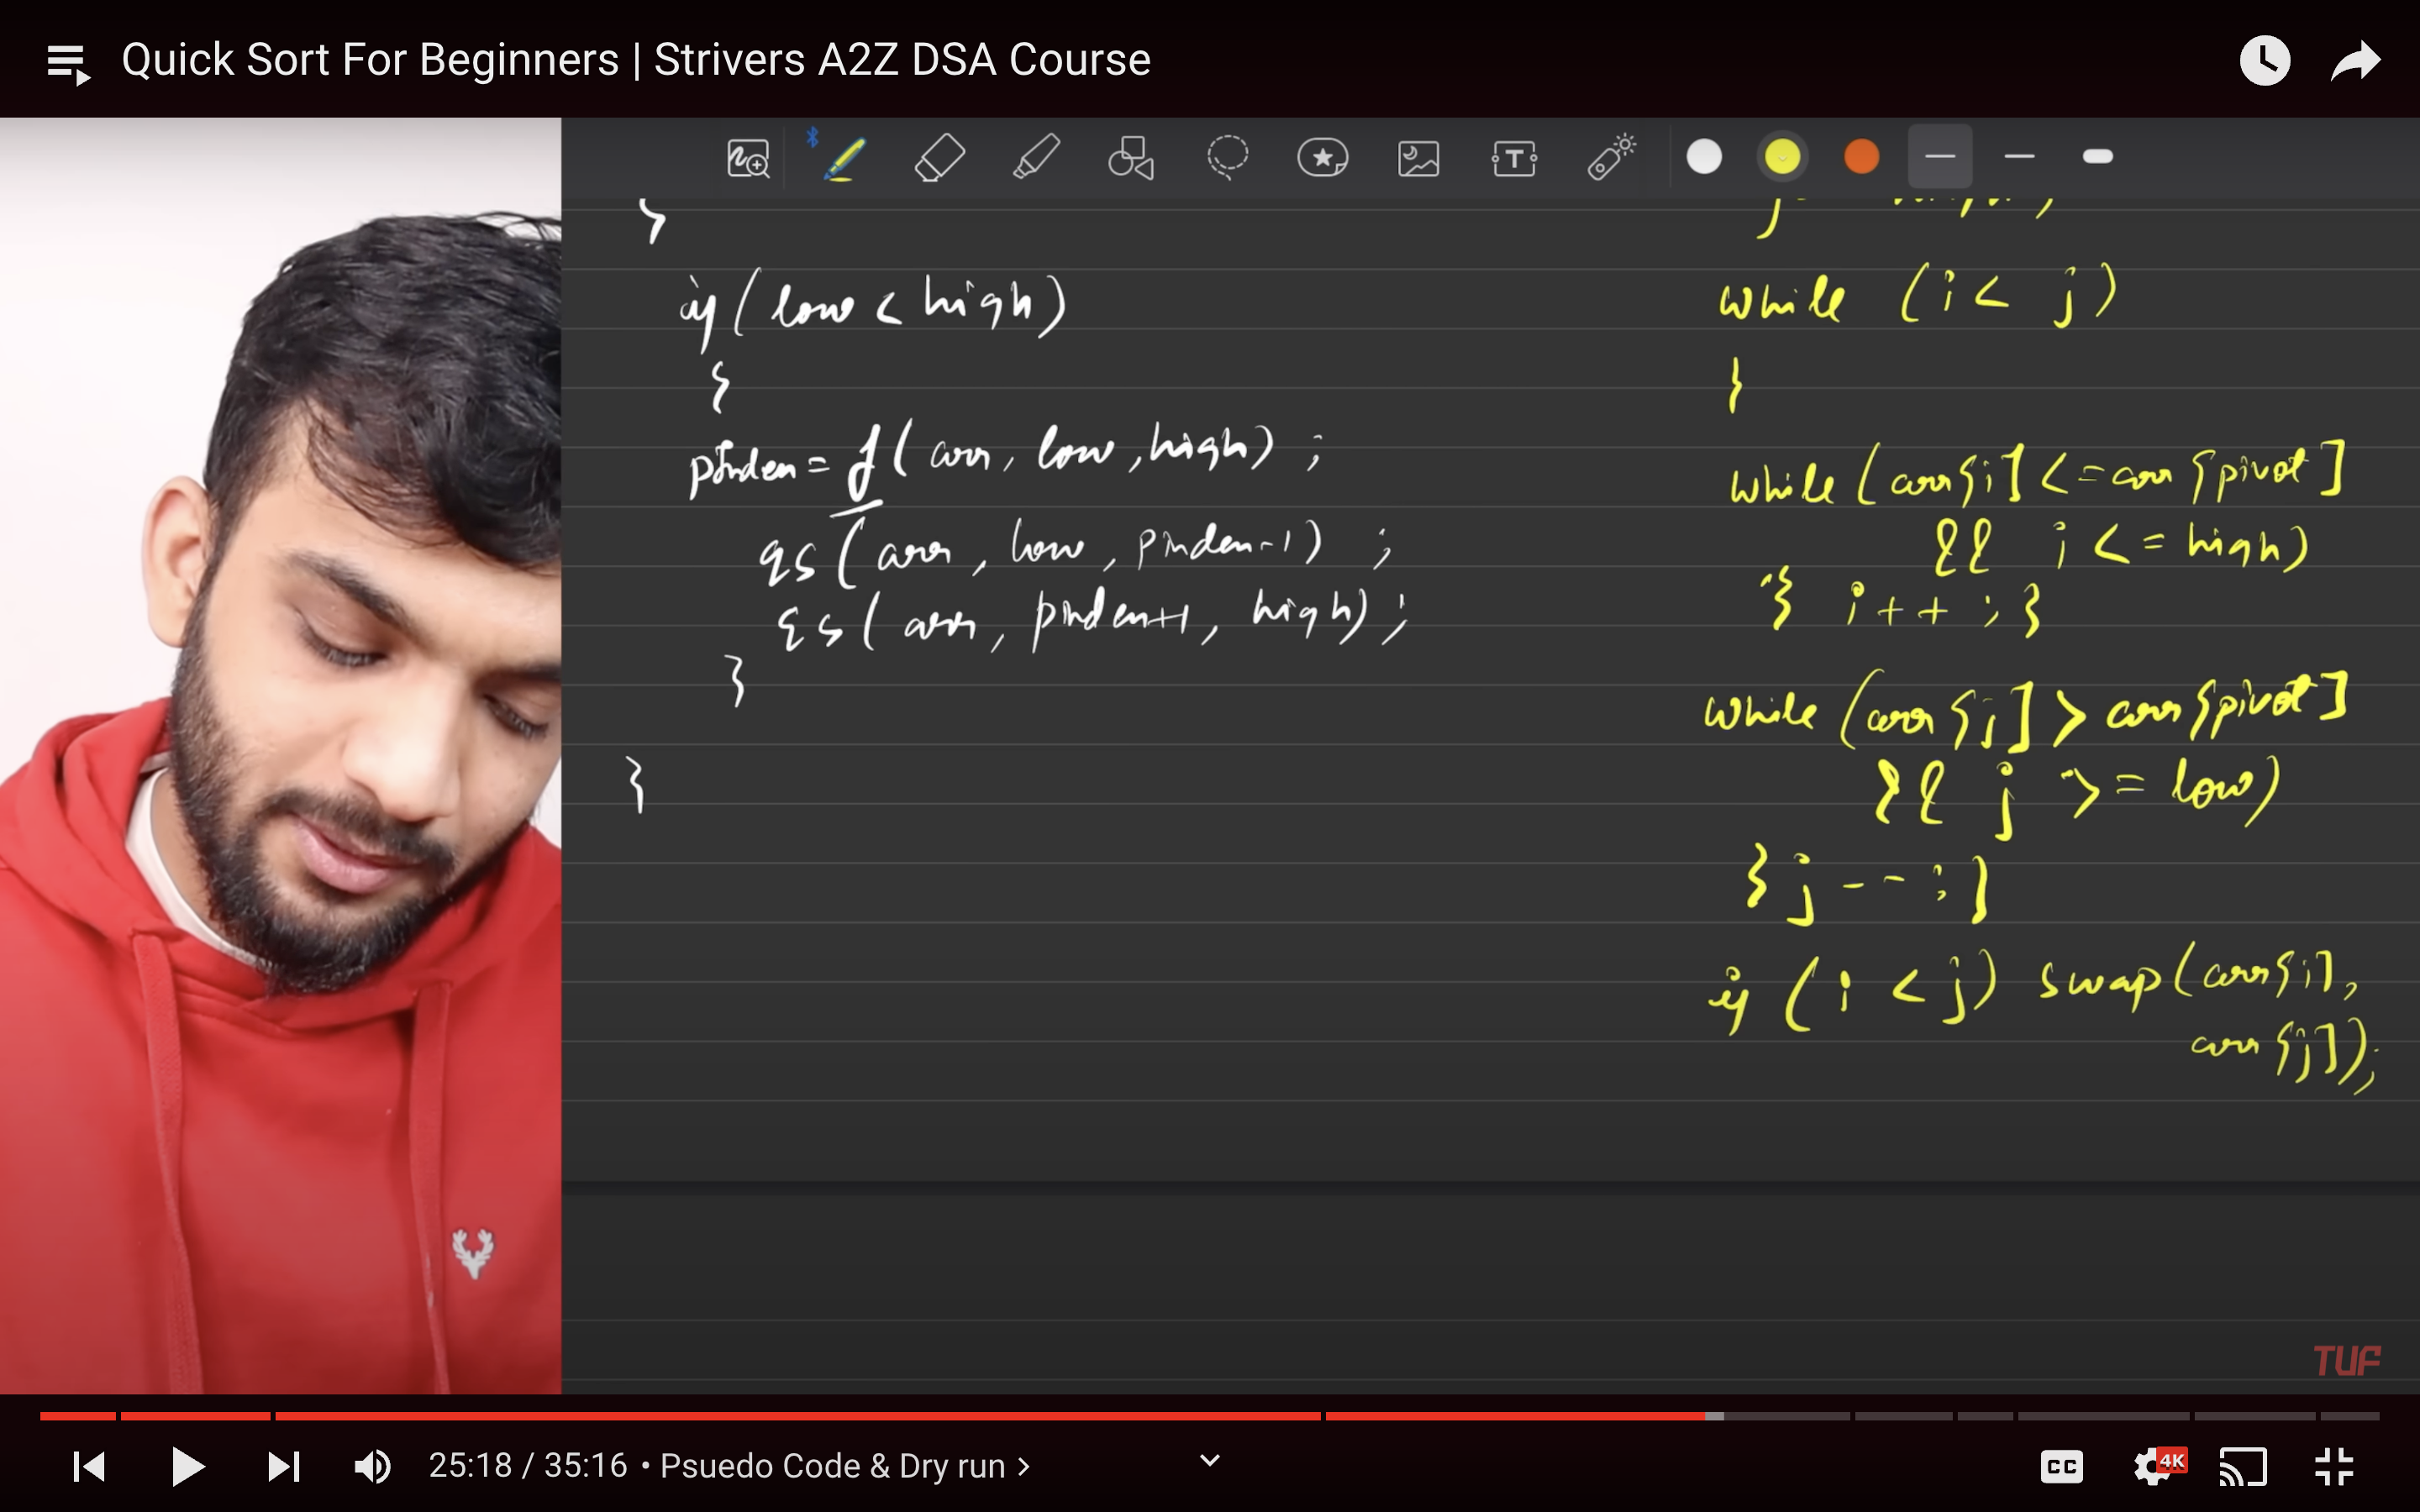 Quick Sort For Beginners | Strivers A2Z DSA Course
}
if (low < high)
{
pIndex = f( arr, low, high) ;
qs( arr, low, pIndex-1) ;
qs( arr, pIndex+1, high) ;
}
}
while (i < j)
{
while (arr[i] <= arr[pivot]
&& i <= high)
{ i++ ; }
while (arr[j] > arr[pivot]
&& j >= low)
{ j-- ; }
if (i < j) swap(arr[i],
arr[j]);
TUF
25:18 / 35:16 • Psuedo Code & Dry run >
CC
4K